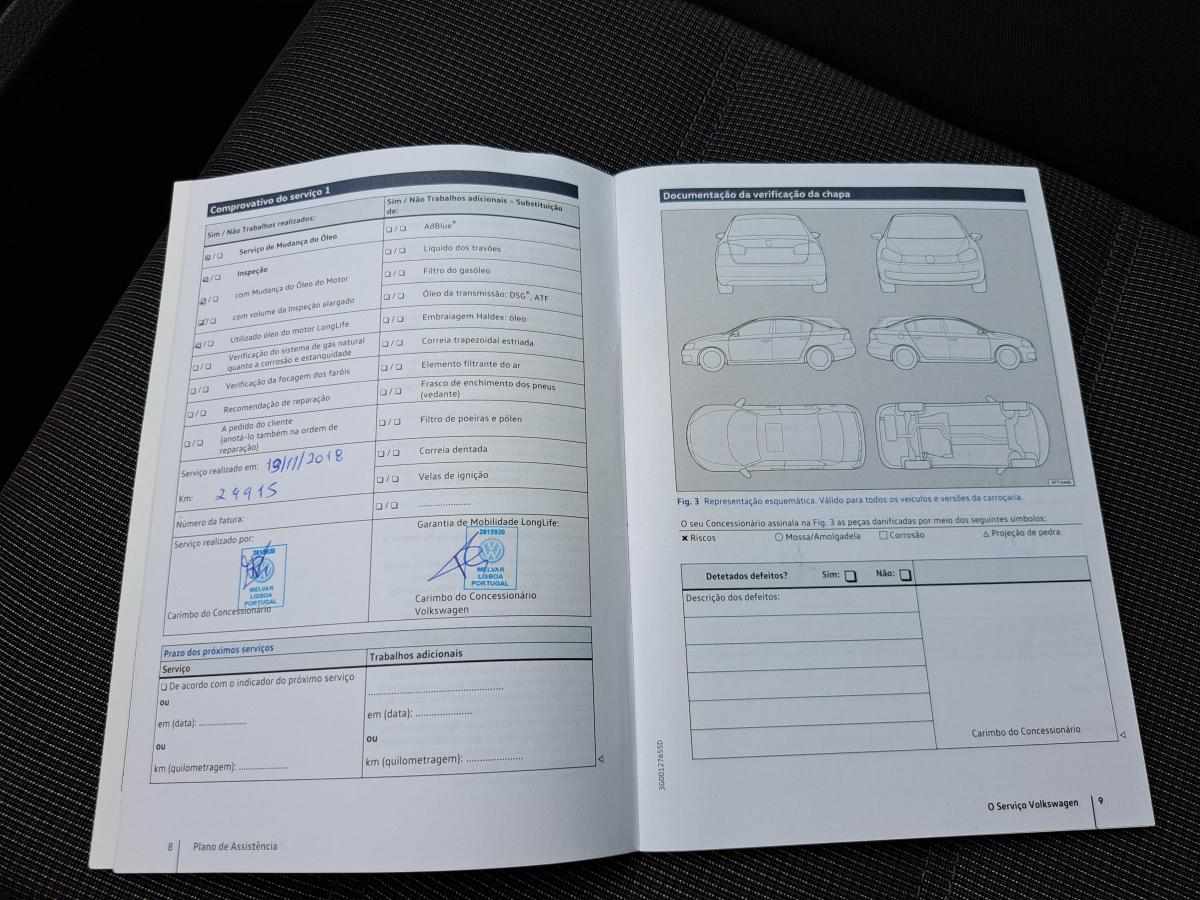 Comprovativo do serviço 1
Sim / Não Trabalhos realizados:
❏ / ❏ Serviço de Mudança do Óleo
❏ / ❏ Inspeção
❏ / ❏ com Mudança do Óleo do Motor
❏ / ❏ com volume da Inspeção alargado
❏ / ❏ Utilizado óleo do motor LongLife
❏ / ❏ Verificação do sistema de gás natural
quanto a corrosão e estanquidade
❏ / ❏ Verificação da focagem dos faróis
❏ / ❏ Recomendação de reparação
❏ / ❏ A pedido do cliente
(anotá-lo também na ordem de
reparação)
Serviço realizado em: 19/11/2018
Km: 24915
Número da fatura:
Serviço realizado por:
2819930
MELVAR
LISBOA
PORTUGAL
Carimbo do Concessionário
Sim / Não Trabalhos adicionais – Substituição
de:
❏ / ❏ AdBlue®
❏ / ❏ Líquido dos travões
❏ / ❏ Filtro do gasóleo
❏ / ❏ Óleo da transmissão: DSG®, ATF
❏ / ❏ Embraiagem Haldex: óleo
❏ / ❏ Correia trapezoidal estriada
❏ / ❏ Elemento filtrante do ar
❏ / ❏ Frasco de enchimento dos pneus
(vedante)
❏ / ❏ Filtro de poeiras e pólen
❏ / ❏ Correia dentada
❏ / ❏ Velas de ignição
❏ / ❏ ....................
Garantia de Mobilidade LongLife:
2819930
MELVAR
LISBOA
PORTUGAL
Carimbo do Concessionário
Volkswagen
Prazo dos próximos serviços
Serviço
❏ De acordo com o indicador do próximo serviço
ou
em (data): ................
ou
km (quilometragem): ................
Trabalhos adicionais
............................................
em (data): ...................
ou
km (quilometragem): ...................
8 Plano de Assistência
Documentação da verificação da chapa
Fig. 3 Representação esquemática. Válido para todos os veículos e versões da carroçaria.
O seu Concessionário assinala na Fig. 3 as peças danificadas por meio dos seguintes símbolos:
✖ Riscos ○ Mossa/Amolgadela □ Corrosão △ Projeção de pedra.
Detetados defeitos? Sim: ❏ Não: ❏
Descrição dos defeitos:
Carimbo do Concessionário
3G0012765SD
O Serviço Volkswagen 9